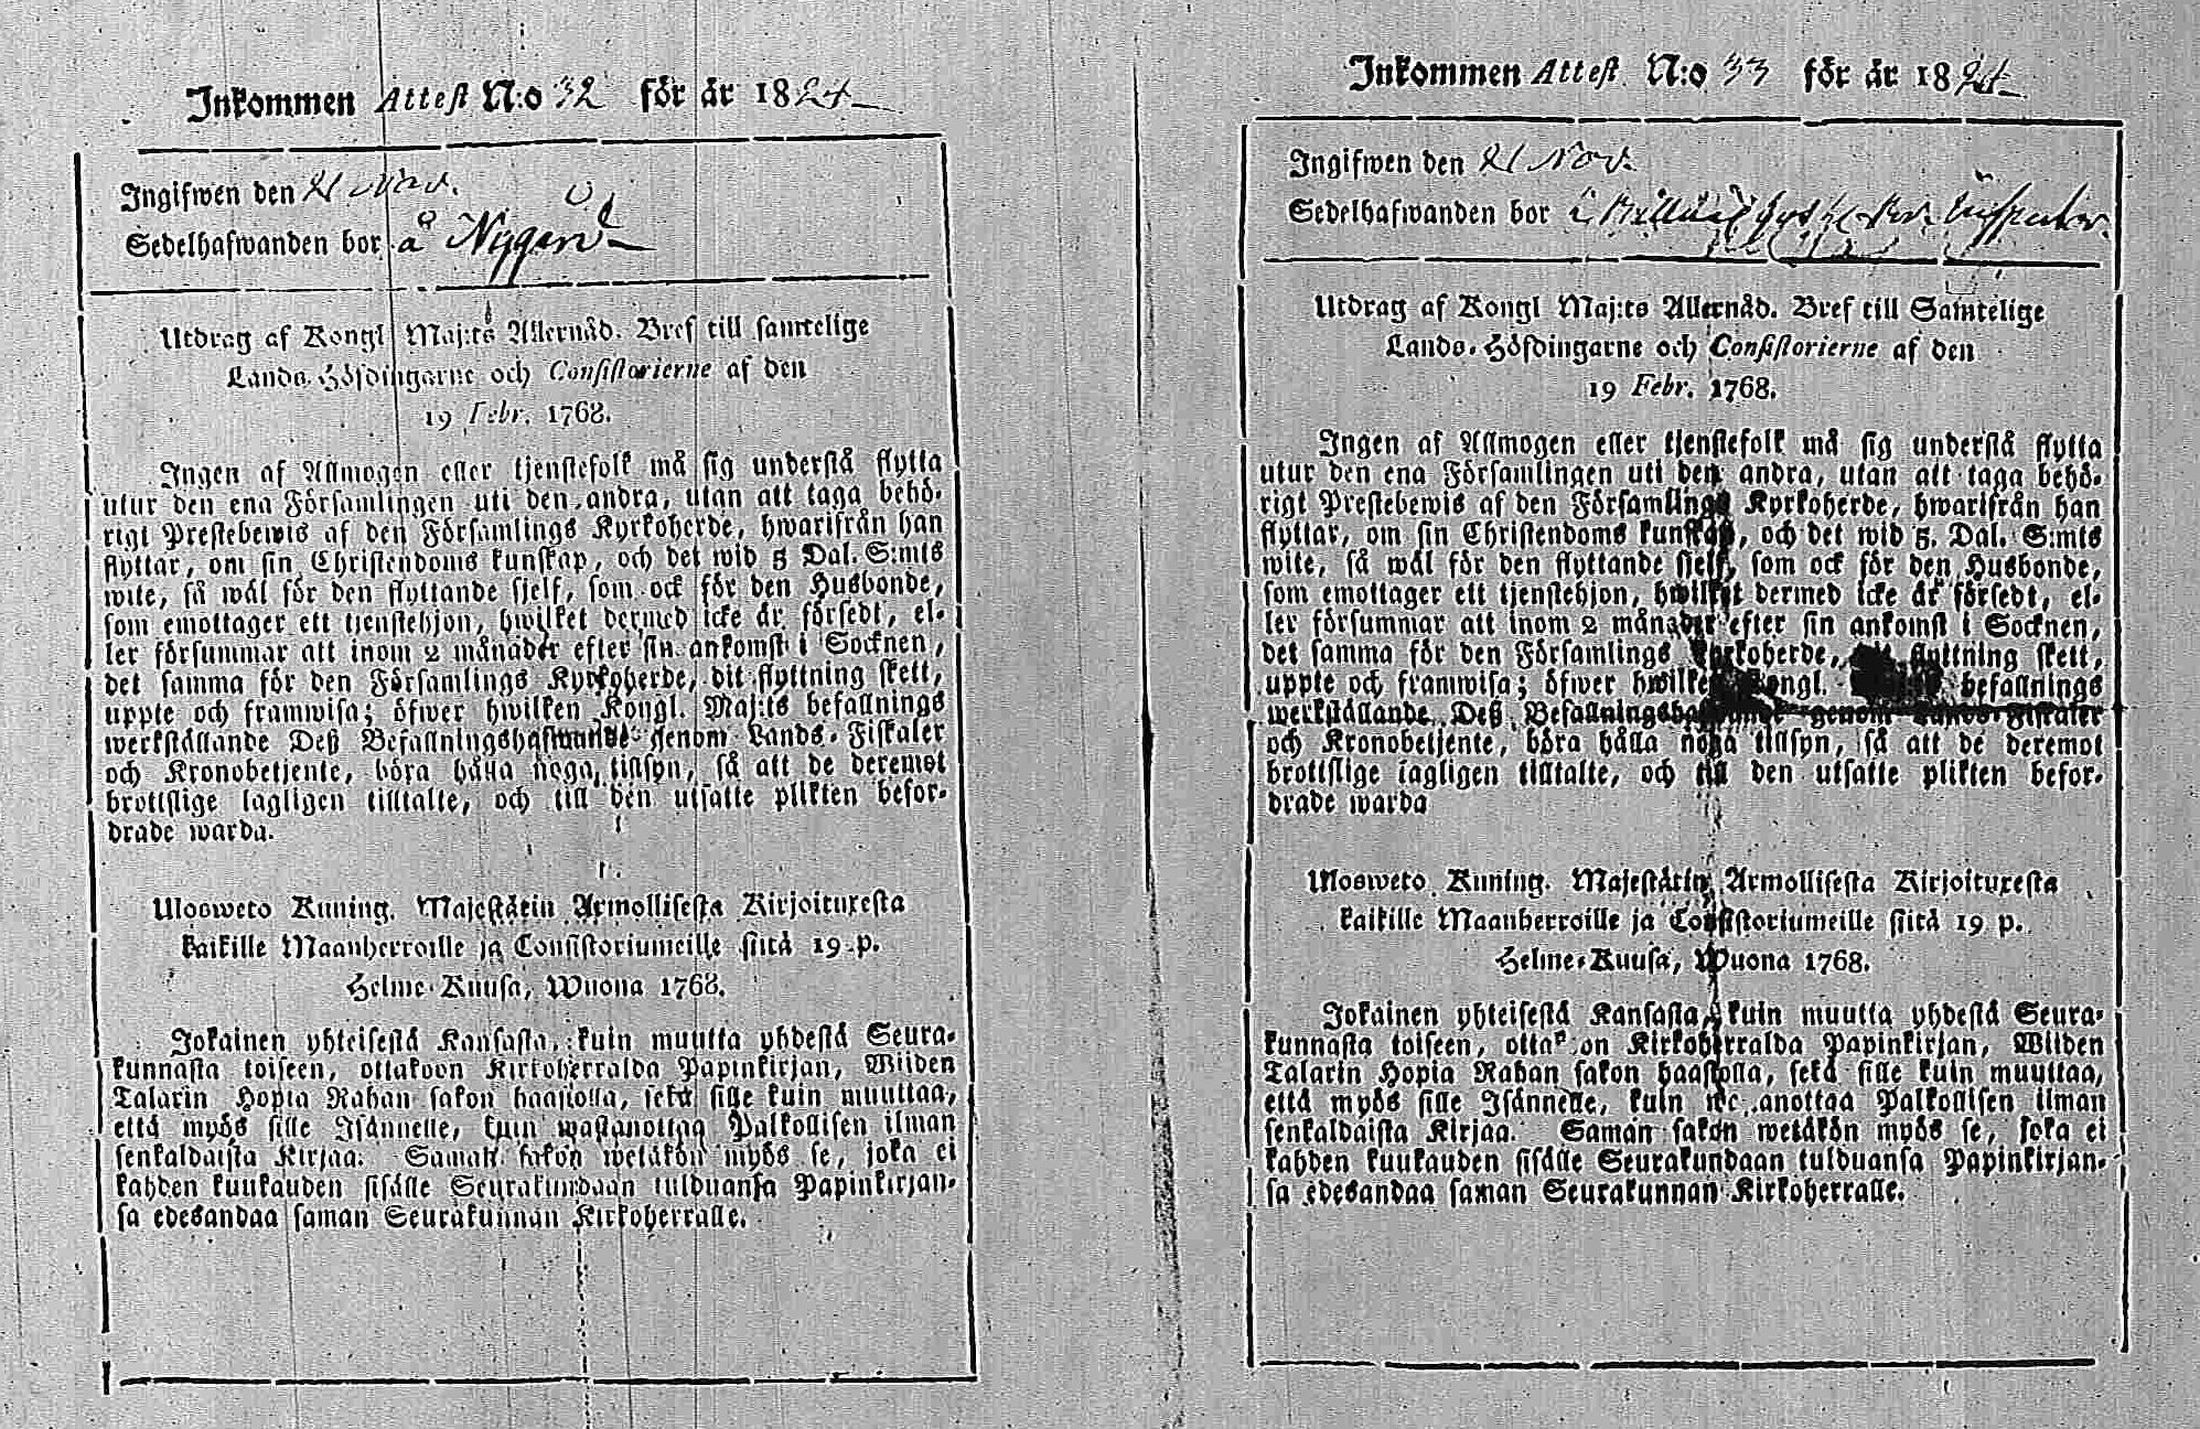 Inkommen Attest N:o 32 för år 1824
Ingifwen den 21 Nov.
Sedelhafwanden bor å Nygård
Utdrag af Kongl Maj:ts Allernåd. Bref till samtelige
Lands-Höfdingarne och Consistorierne af den
19 Febr. 1768.
Ingen af Allmogen eller tjenstefolk må sig understå flytta
utur den ena Församlingen uti den andra, utan att taga behö-
rigt Prestebewis af den Församlings Kyrkoherde, hwarifrån han
flyttar, om sin Christendoms kunskap, och det wid 5 Dal. S:mts
wite, så wäl för den flyttande sjelf, som ock för den Husbonde,
som emottager ett tjenstehjon, hwilket dermed icke är försedt, el-
ler försummar att inom 2 månader efter sin ankomst i Socknen,
det samma för den Församlings Kyrkoherde, dit flyttning skett,
uppte och framwisa; öfwer hwilken Kongl. Maj:ts befallnings
werkställande Deß Befallningshafwande genom Lands-Fiskaler
och Kronobetjente, böra hålla noga tillsyn, så att de deremot
brottslige lagligen tilltalte, och till den utsatte plikten befor-
drade warda.
Ulosweto Kuning. Majestätin Armollisesta Kirjoituxesta
kaikille Maanherroille ja Consistoriumeille siitä 19 p.
Helme-Kuusa, Wuona 1768.
Jokainen yhteisestä Kansasta, kuin muutta yhdestä Seura-
kunnasta toiseen, ottakoon Kirkoherralda Papinkirjan, Wiiden
Talarin Hopia Rahan sakon haastolla, sekä sille kuin muuttaa,
että myös sille Isännelle, kuin wastanottaa Palkollisen ilman
senkaldaista Kirjaa. Saman sakon wetäkön myös se, joka ei
kahden kuukauden sisälle Seurakundaan tulduansa Papinkirjan-
sa edesandaa saman Seurakunnan Kirkoherralle.
Inkommen Attest N:o 33 för år 1824
Ingifwen den 21 Nov.
Sedelhafwanden bor
Utdrag af Kongl Maj:ts Allernåd. Bref till Samtelige
Lands-Höfdingarne och Consistorierne af den
19 Febr. 1768.
Ingen af Allmogen eller tjenstefolk må sig understå flytta
utur den ena Församlingen uti den andra, utan att taga behö-
rigt Prestebewis af den Församlings Kyrkoherde, hwarifrån han
flyttar, om sin Christendoms kunskap, och det wid 5. Dal. S:mts
wite, så wäl för den flyttande sjelf, som ock för den Husbonde,
som emottager ett tjenstehjon, hwilket dermed icke är försedt, el-
ler försummar att inom 2 månader efter sin ankomst i Socknen,
det samma för den Församlings Kyrkoherde, flyttning skett,
uppte och framwisa; öfwer hwilken Kongl. befallnings
werkställande Deß Befallningshafwande genom Lands-Fiskaler
och Kronobetjente, böra hålla noga tillsyn, så att de deremot
brottslige lagligen tilltalte, och till den utsatte plikten befor-
drade warda
Ulosweto Kuning. Majestätin Armollisesta Kirjoituxesta
kaikille Maanherroille ja Consistoriumeille siitä 19 p.
Helme-Kuusa, Wuona 1768.
Jokainen yhteisestä Kansasta, kuin muutta yhdestä Seura-
kunnasta toiseen, ottakoon Kirkoherralda Papinkirjan, Wiiden
Talarin Hopia Rahan sakon haastolla, sekä sille kuin muuttaa,
että myös sille Isännelle, kuin Palkollisen ilman
senkaldaista Kirjaa. Saman sakon wetäkön myös se, joka ei
kahden kuukauden sisälle Seurakundaan tulduansa Papinkirjan-
sa edesandaa saman Seurakunnan Kirkoherralle.